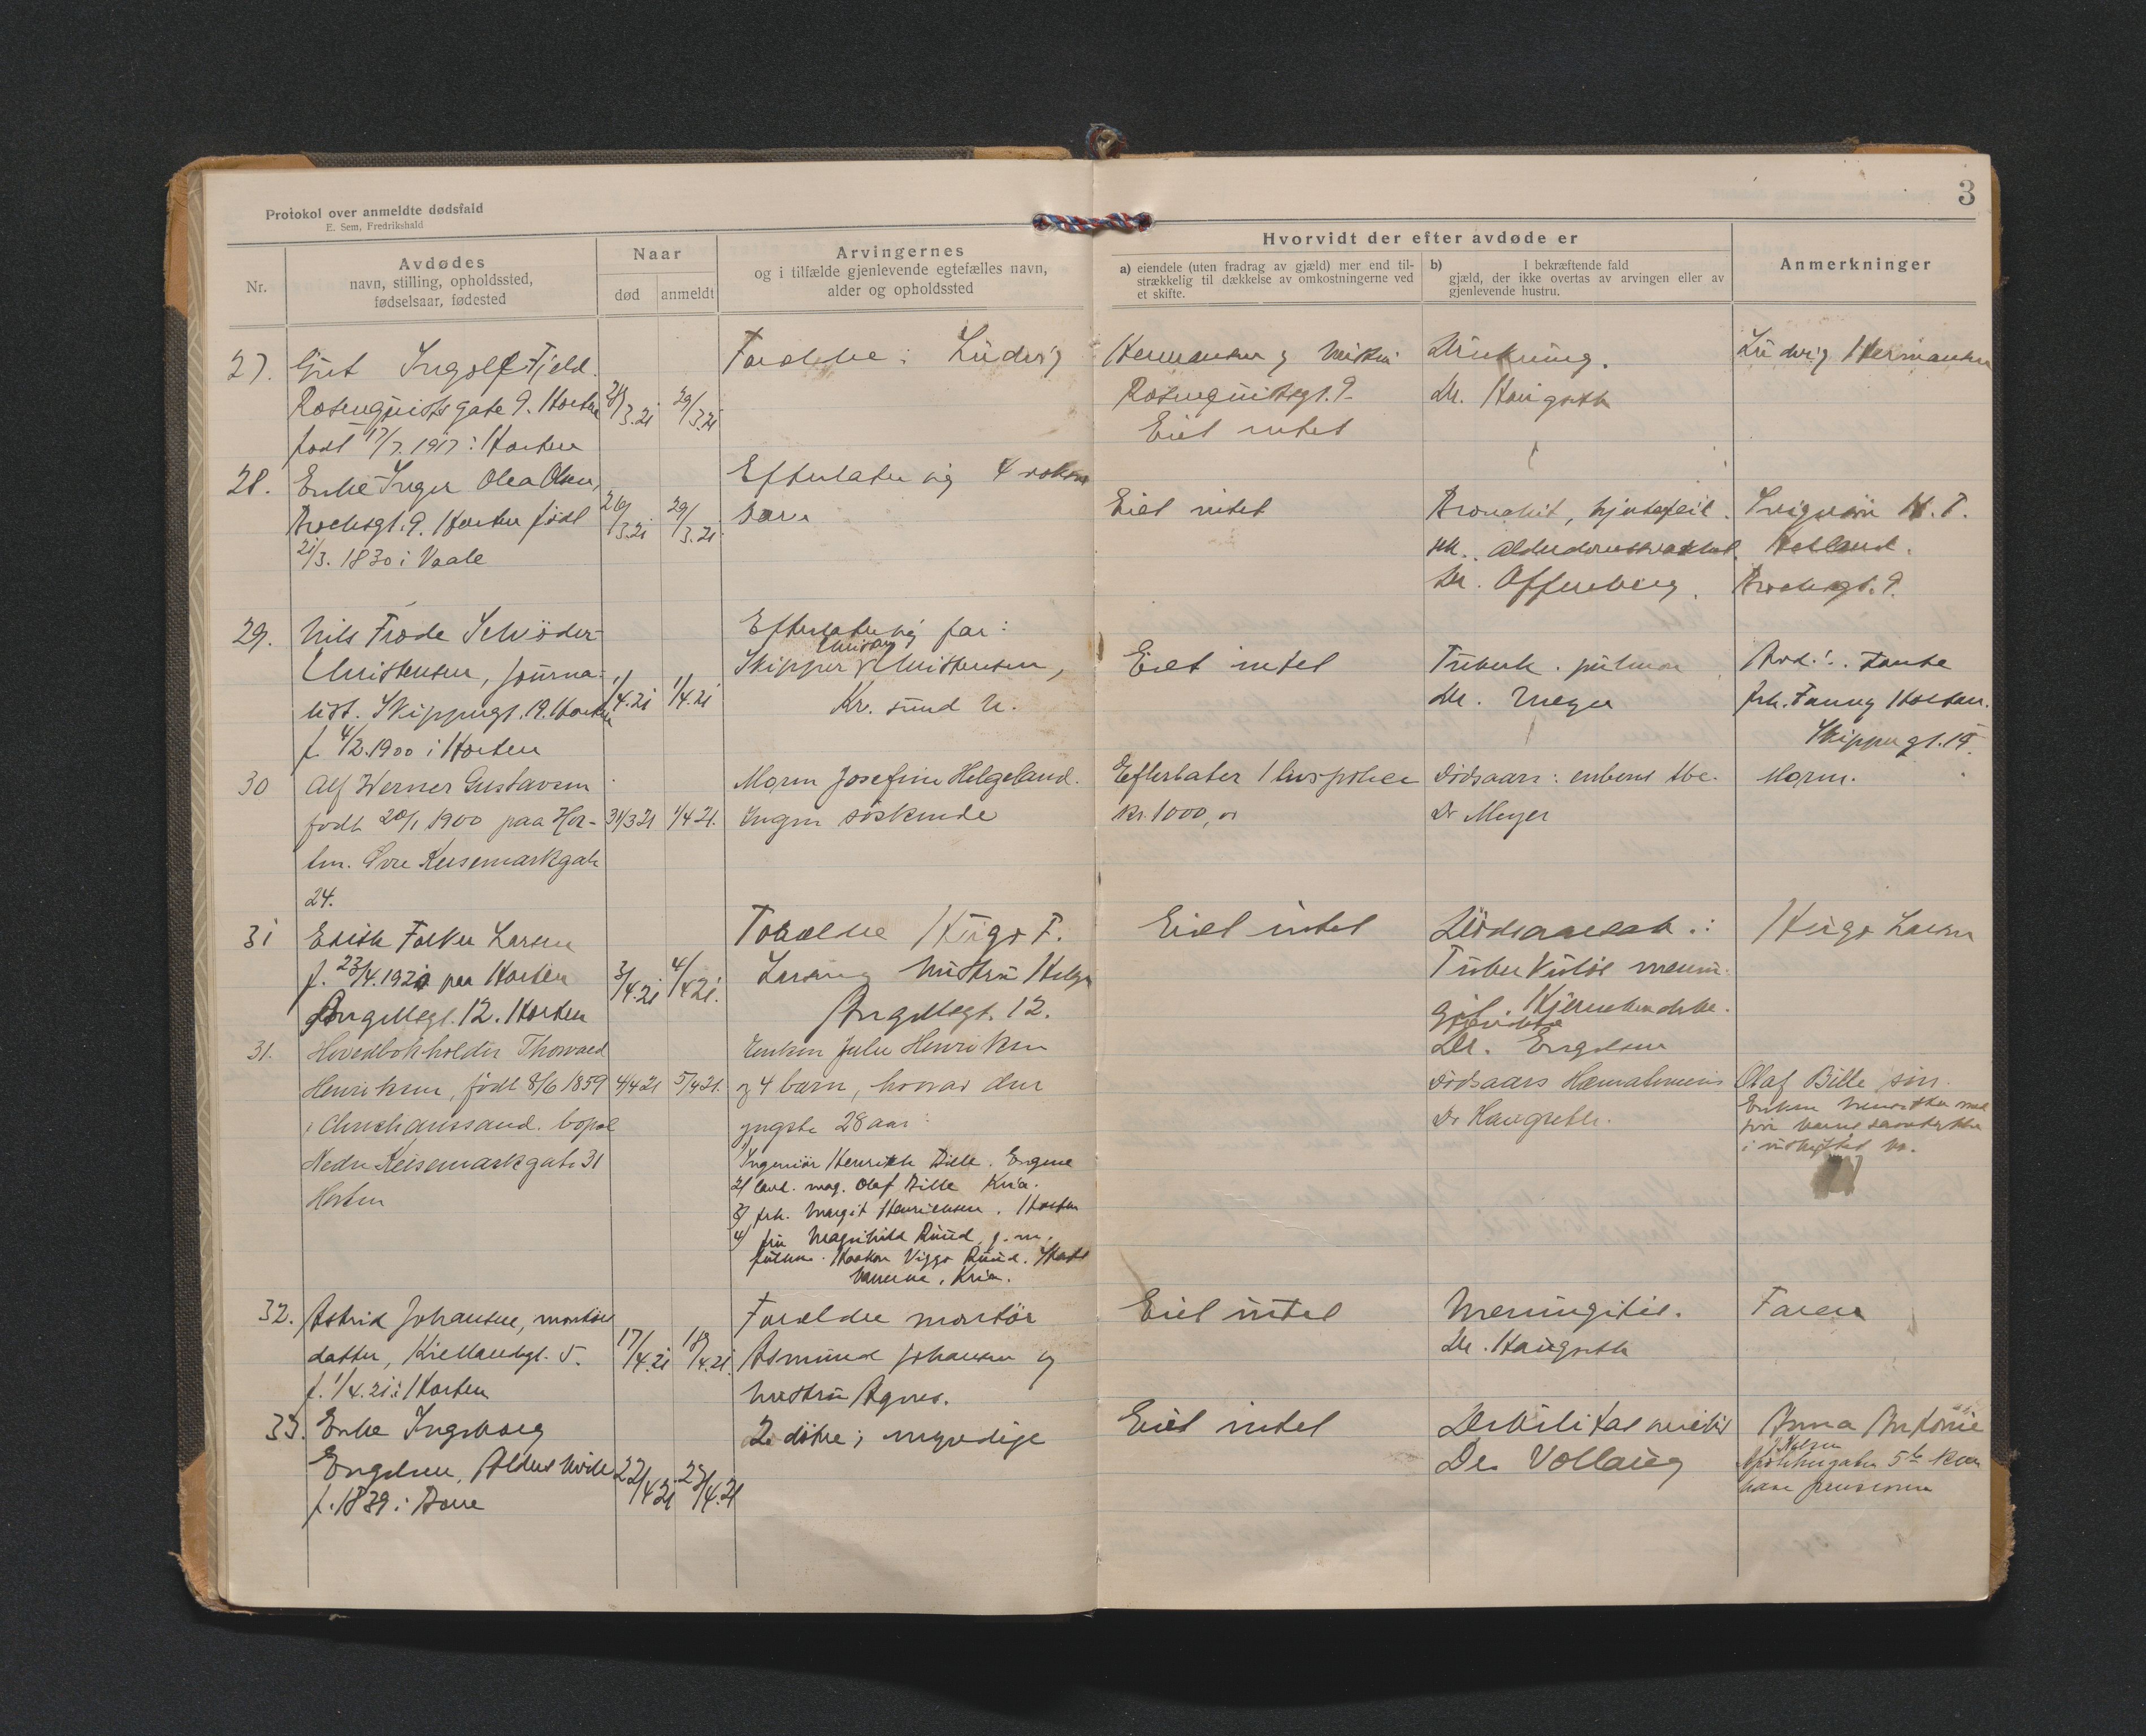 3
Protokol over anmeldte dødsfald
E. Sem, Fredrikshald
Nr.
Avdødes
navn, stilling, opholdssted,
fødselsaar, fødested
Naar
død
anmeldt
Arvingernes
og i tilfælde gjenlevende egtefælles navn,
alder og opholdssted
Hvorvidt der efter avdøde er
a) eiendele (uten fradrag av gjæld) mer end til-
strækkelig til dækkelse av omkostningerne ved
et skifte.
b) I bekræftende fald
gjæld, der ikke overtas av arvingen eller av
gjenlevende hustru.
Anmerkninger
27. Gut Ingolf Fjeld
Rosenquistsgate 9. Horten
født 17/7. 1917 i Horten
28/3.21
29/3.21
Forældre: Ludvig Hermansen og hustru
Rosenquistsgt. 9
Eiet intet
Drukning.
Dr. Haugseth
Ludvig Hermansen
28. Enke Inger Olea Olsen,
Brochsgt. 9. Horten født
21/3. 1830 i Vaale
26/3.21
29/3.21
Efterlater sig 4 voksne
barn
Eiet intet
Bronchit, hjertefeil.
Alderdomssvakhet
Dr. Offenberg.
H. T.
Brochsgt. 9.
29. Nils Frode Schrøder-
Christensen, journa-
list. Skippergt. 19. Horten
f. 4/2.1900 i Horten
1/4.21
1/4.21
Efterlater sig far:
Skipper Christensen,
Kr. sund N.
Eiet intet
Tuberk. pulmon
Dr. Meyer
Tante
frk. Fanny
Skippergt. 19.
30 Alf Werner Gustavsen
født 20/1 1900 paa Hor-
ten. Øvre Keisemarkgate
24.
31/3 21
1/4 21.
Moren Josefine Helgeland.
Ingen søskende
Efterlater 1 livspolice
kr. 1000,00
Dødsaars:
Dr Meyer
Moren.
31 Edith Larsen
f. 23/4.1920 paa Horten
Gt. 12. Horten
3/4.21
4/4.21.
Forældre Hugo F.
Larsen og hustru Helga
12.
Eiet intet
Dødsaarsak:
Tuberkuløs menin-
git Hjernehindebe-
Dr. Engelsen
Hugo Larsen
31. Hovedbokholder Thorvald
Henriksen, født 8/6 1859
i Christianssand. bopæl
Nedre Keisemarkgate 31
Horten
4/4 21
5/4 21.
Enken Julie Henriksen
og 4 barn, hvorav den
yngste 28 aar:
1) Ingeniør Henrik Bille.
2) cand. mag. Olaf Bille Kria.
3) frk. Margit Henriksen. Horten
4) fru Magnhild Ruud, g. m.
Haakon Viggo Ruud.
Kria.
Dødsaars
Dr Haugseth.
Olaf Bille søn.
Enken
32. Astrid Johansen, montør
datter, Kiellandsgt. 5.
f. 1/4.21 i Horten
17/4.21
18/4.21
Forældre montør
Asmund Johansen og
hustru Agnes.
Eiet intet
Meningitis.
Dr. Haugseth
Faren
33. Enke Ingeborg
Engelsen, Aldershvile
f. 1839 i Borre
22/4 21
23/4.21
2 døtre; myndige
Eiet intet
Debilitas
Dr. Vollaug
Anna Antonie